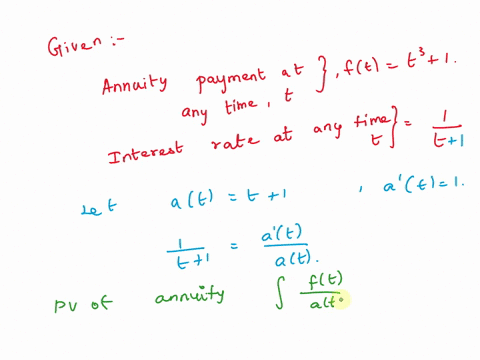 Given :-
Annuity payment at } , f(t) = t³+1.
any time, t
Interest rate at any time } = 1/(t+1)
t
Let a(t) = t+1 , a'(t)=1.
1/(t+1) = a'(t)/a(t).
PV of annuity ∫ f(t)/a(t